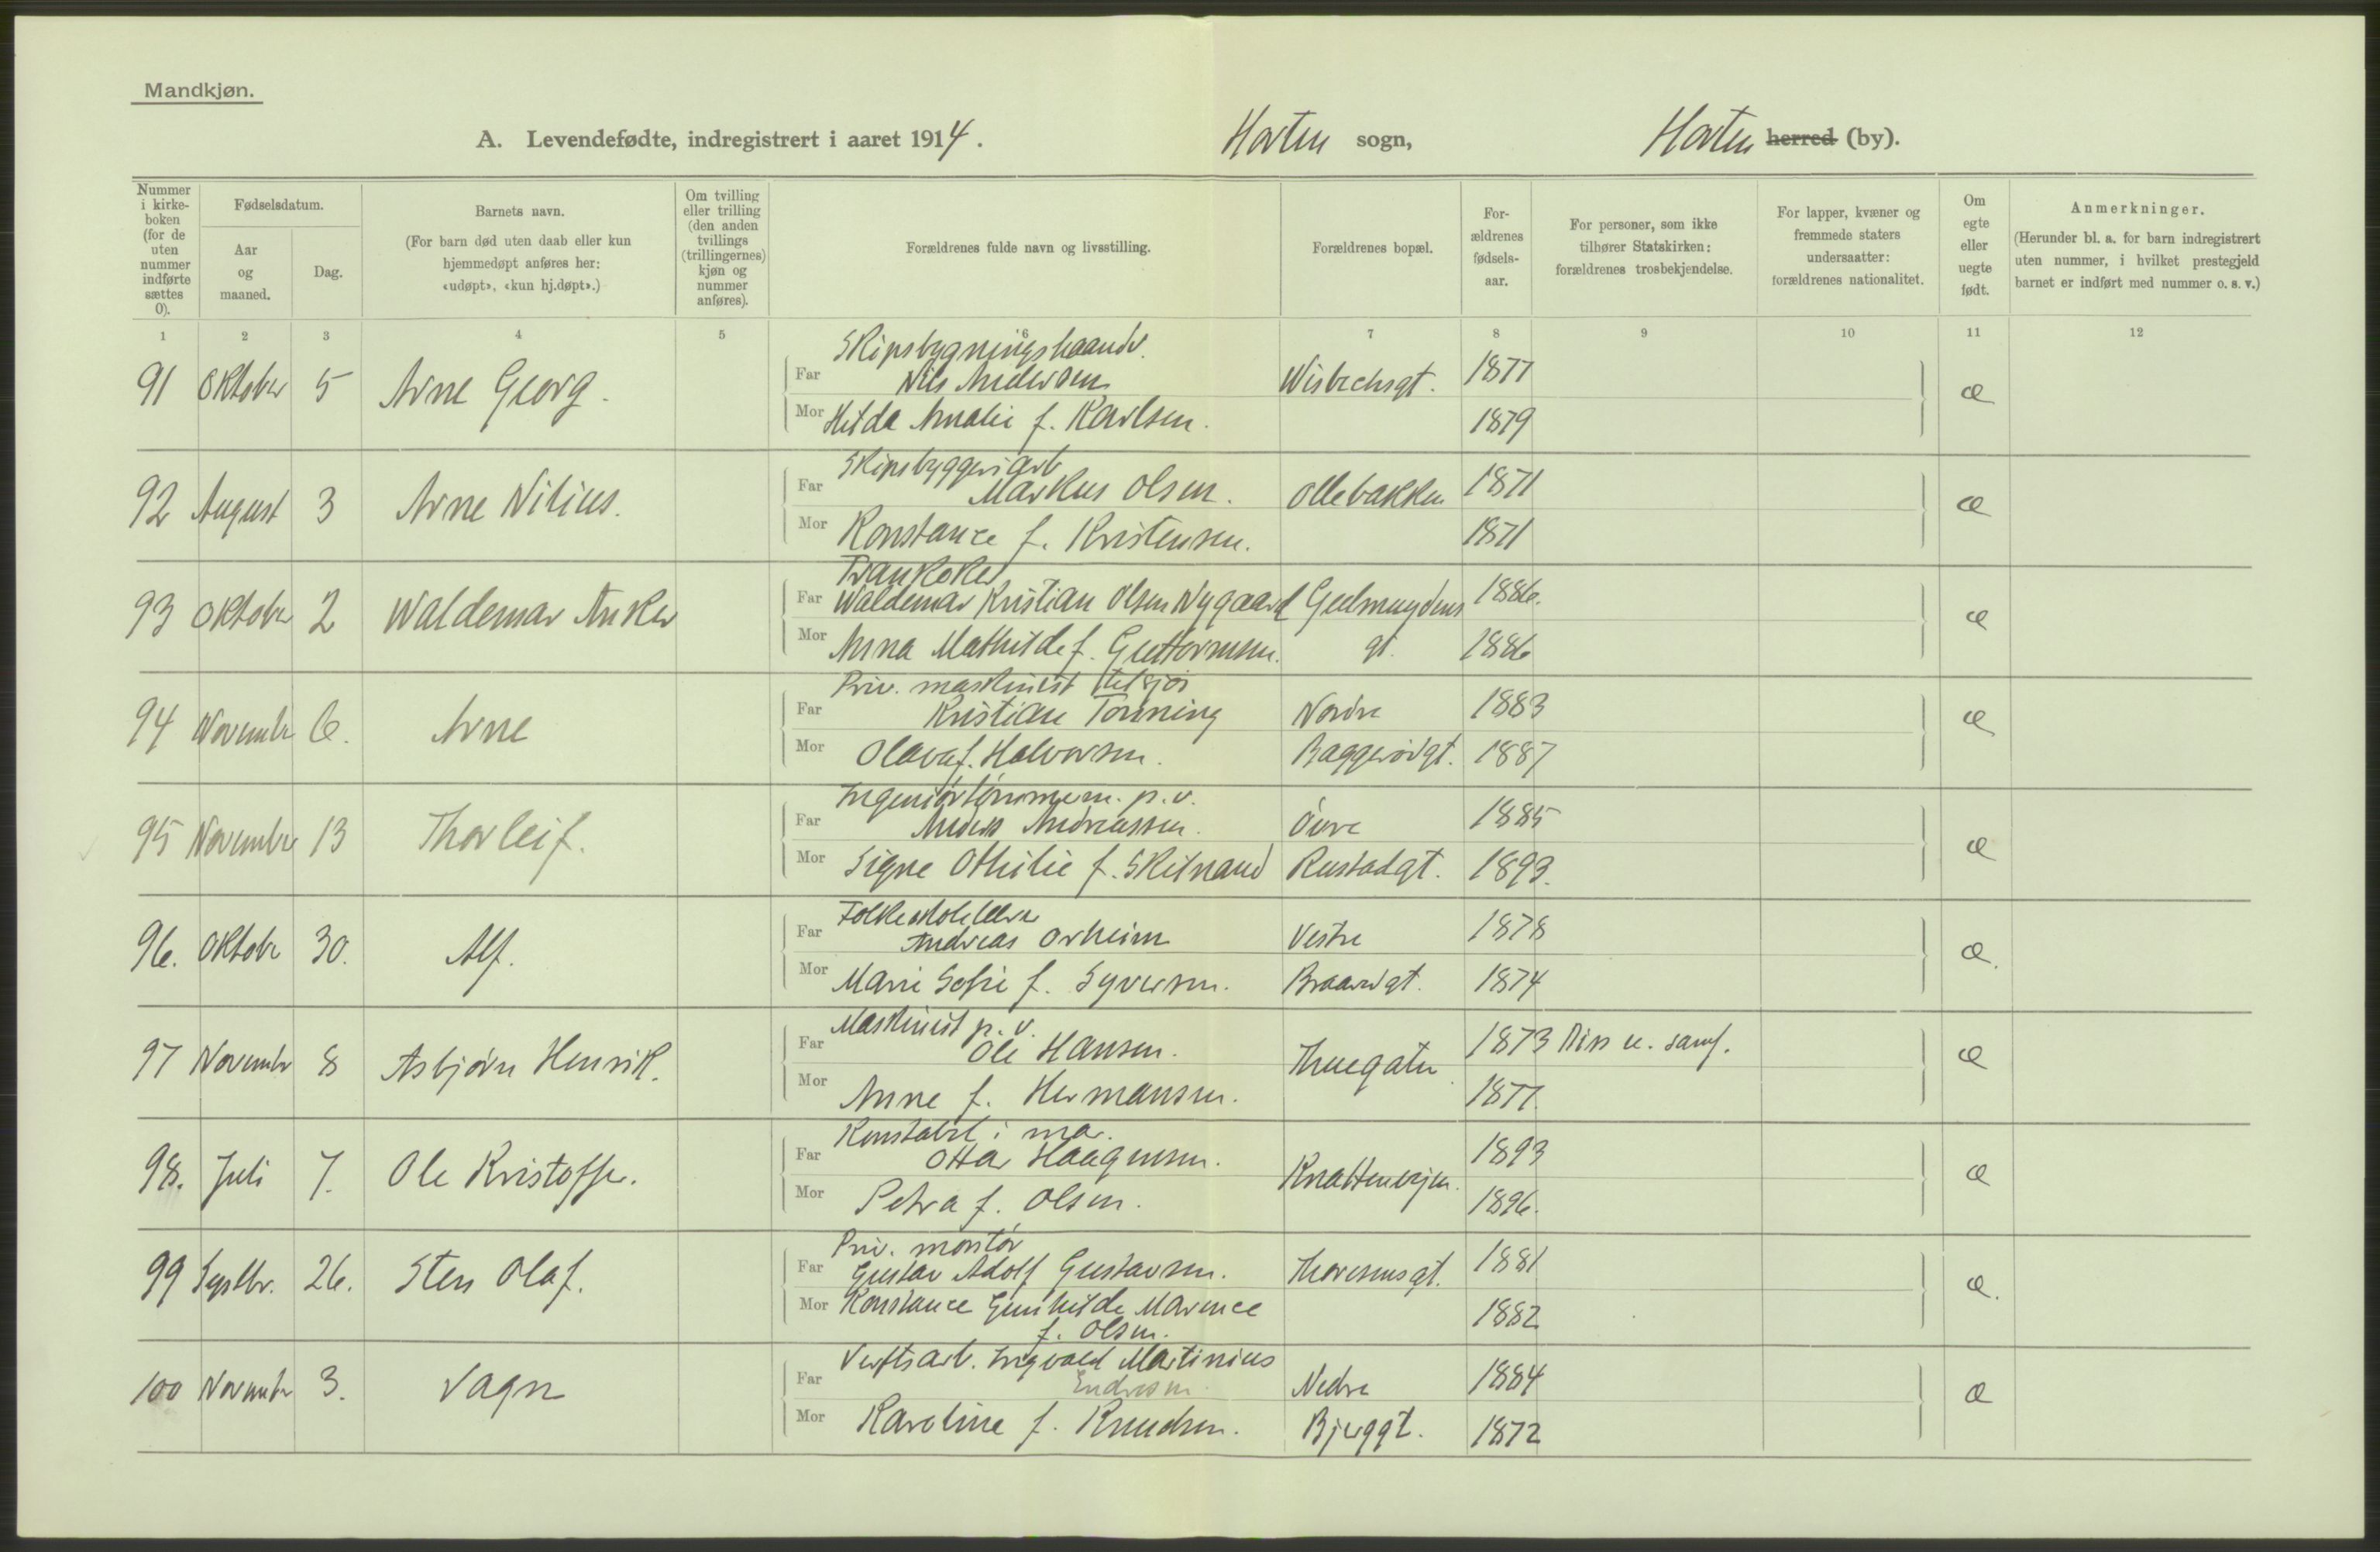 Mandkjøn.
A. Levendefødte, indregistrert i aaret 1914. Horten sogn, Horten herred (by).
Nummer i kirkeboken (for de uten nummer indførte sættes 0).
Fødselsdatum.
Aar og maaned.
Dag.
Barnets navn.
(For barn død uten daab eller kun hjemmedøpt anføres her: «udøpt», «kun hj.døpt».)
Om tvilling eller trilling (den anden tvillings (trillingernes) kjøn og nummer anføres).
Forældrenes fulde navn og livsstilling.
Forældrenes bopæl.
Forældrenes fødselsaar.
For personer, som ikke tilhører Statskirken: forældrenes trosbekjendelse.
For lapper, kvæner og fremmede staters undersaatter: forældrenes nationalitet.
Om egte eller uegte født.
Anmerkninger.
(Herunder bl. a. for barn indregistrert uten nummer, i hvilket prestegjeld barnet er indført med nummer o. s. v.)
1 2 3 4 5 6 7 8 9 10 11 12
Skipsbygningshaandv.
91 Oktober 5 Arne Georg. Far Nils Andersen Wisbechsgt. 1877 æ
Mor Hilda Amalie f. Karlsen. 1879
Skipsbyggeriarb
92 August 3 Arne Nilius. Far Markus Olsen. Ollebakken 1871 æ
Mor Konstance f. Kristensen. 1871
Trankoker
93 Oktober 2 Waldemar Anker Far Waldemar Kristian Olsen Nygaard Geelmuydens 1886. æ
Mor Anna Mathilde f. Guttormsen. gt. 1886
Priv. maskinist tilsjøs
94 November 6. Arne Far Kristian Tønning Nordre 1883 æ
Mor Olava f. Halvorsen. Baggerødgt. 1887
p. v.
95 November 13 Thorleif. Far Anders Andreassen. Øvre 1885 æ
Mor Signe Othilie f. Skilnand Rustadgt. 1893.
Folkeskolelærer
96. Oktober 30. Alf. Far Andreas Orheim Vestre 1878 æ.
Mor Marie Sofie f. Syversen. Braarudgt. 1874
Maskinist p. v.
97 November 8 Asbjørn Henrik. Far Ole Hansen. Thuegaten 1873 Diss u. samf. æ
Mor Anne f. Hermansen. 1877.
Konstabel i mar.
98. Juli 7. Ole Kristoffer. Far Ottar Haagensen. Knattenvejen. 1893 æ
Mor Petra f. Olsen. 1896.
Priv. montør
99 Septbr. 26. Sten Olaf. Far Gustav Adolf Gustavsen. Thoresensgt. 1881 æ.
Mor Konstance Gunhilde Marence 1882
f. Olsen.
Verftsarb. Ingvald Martinius
100 November 3. Vagn Far Endresen. Nedre 1884 æ
Mor Karoline f. Knudsen. Bjerggt. 1872